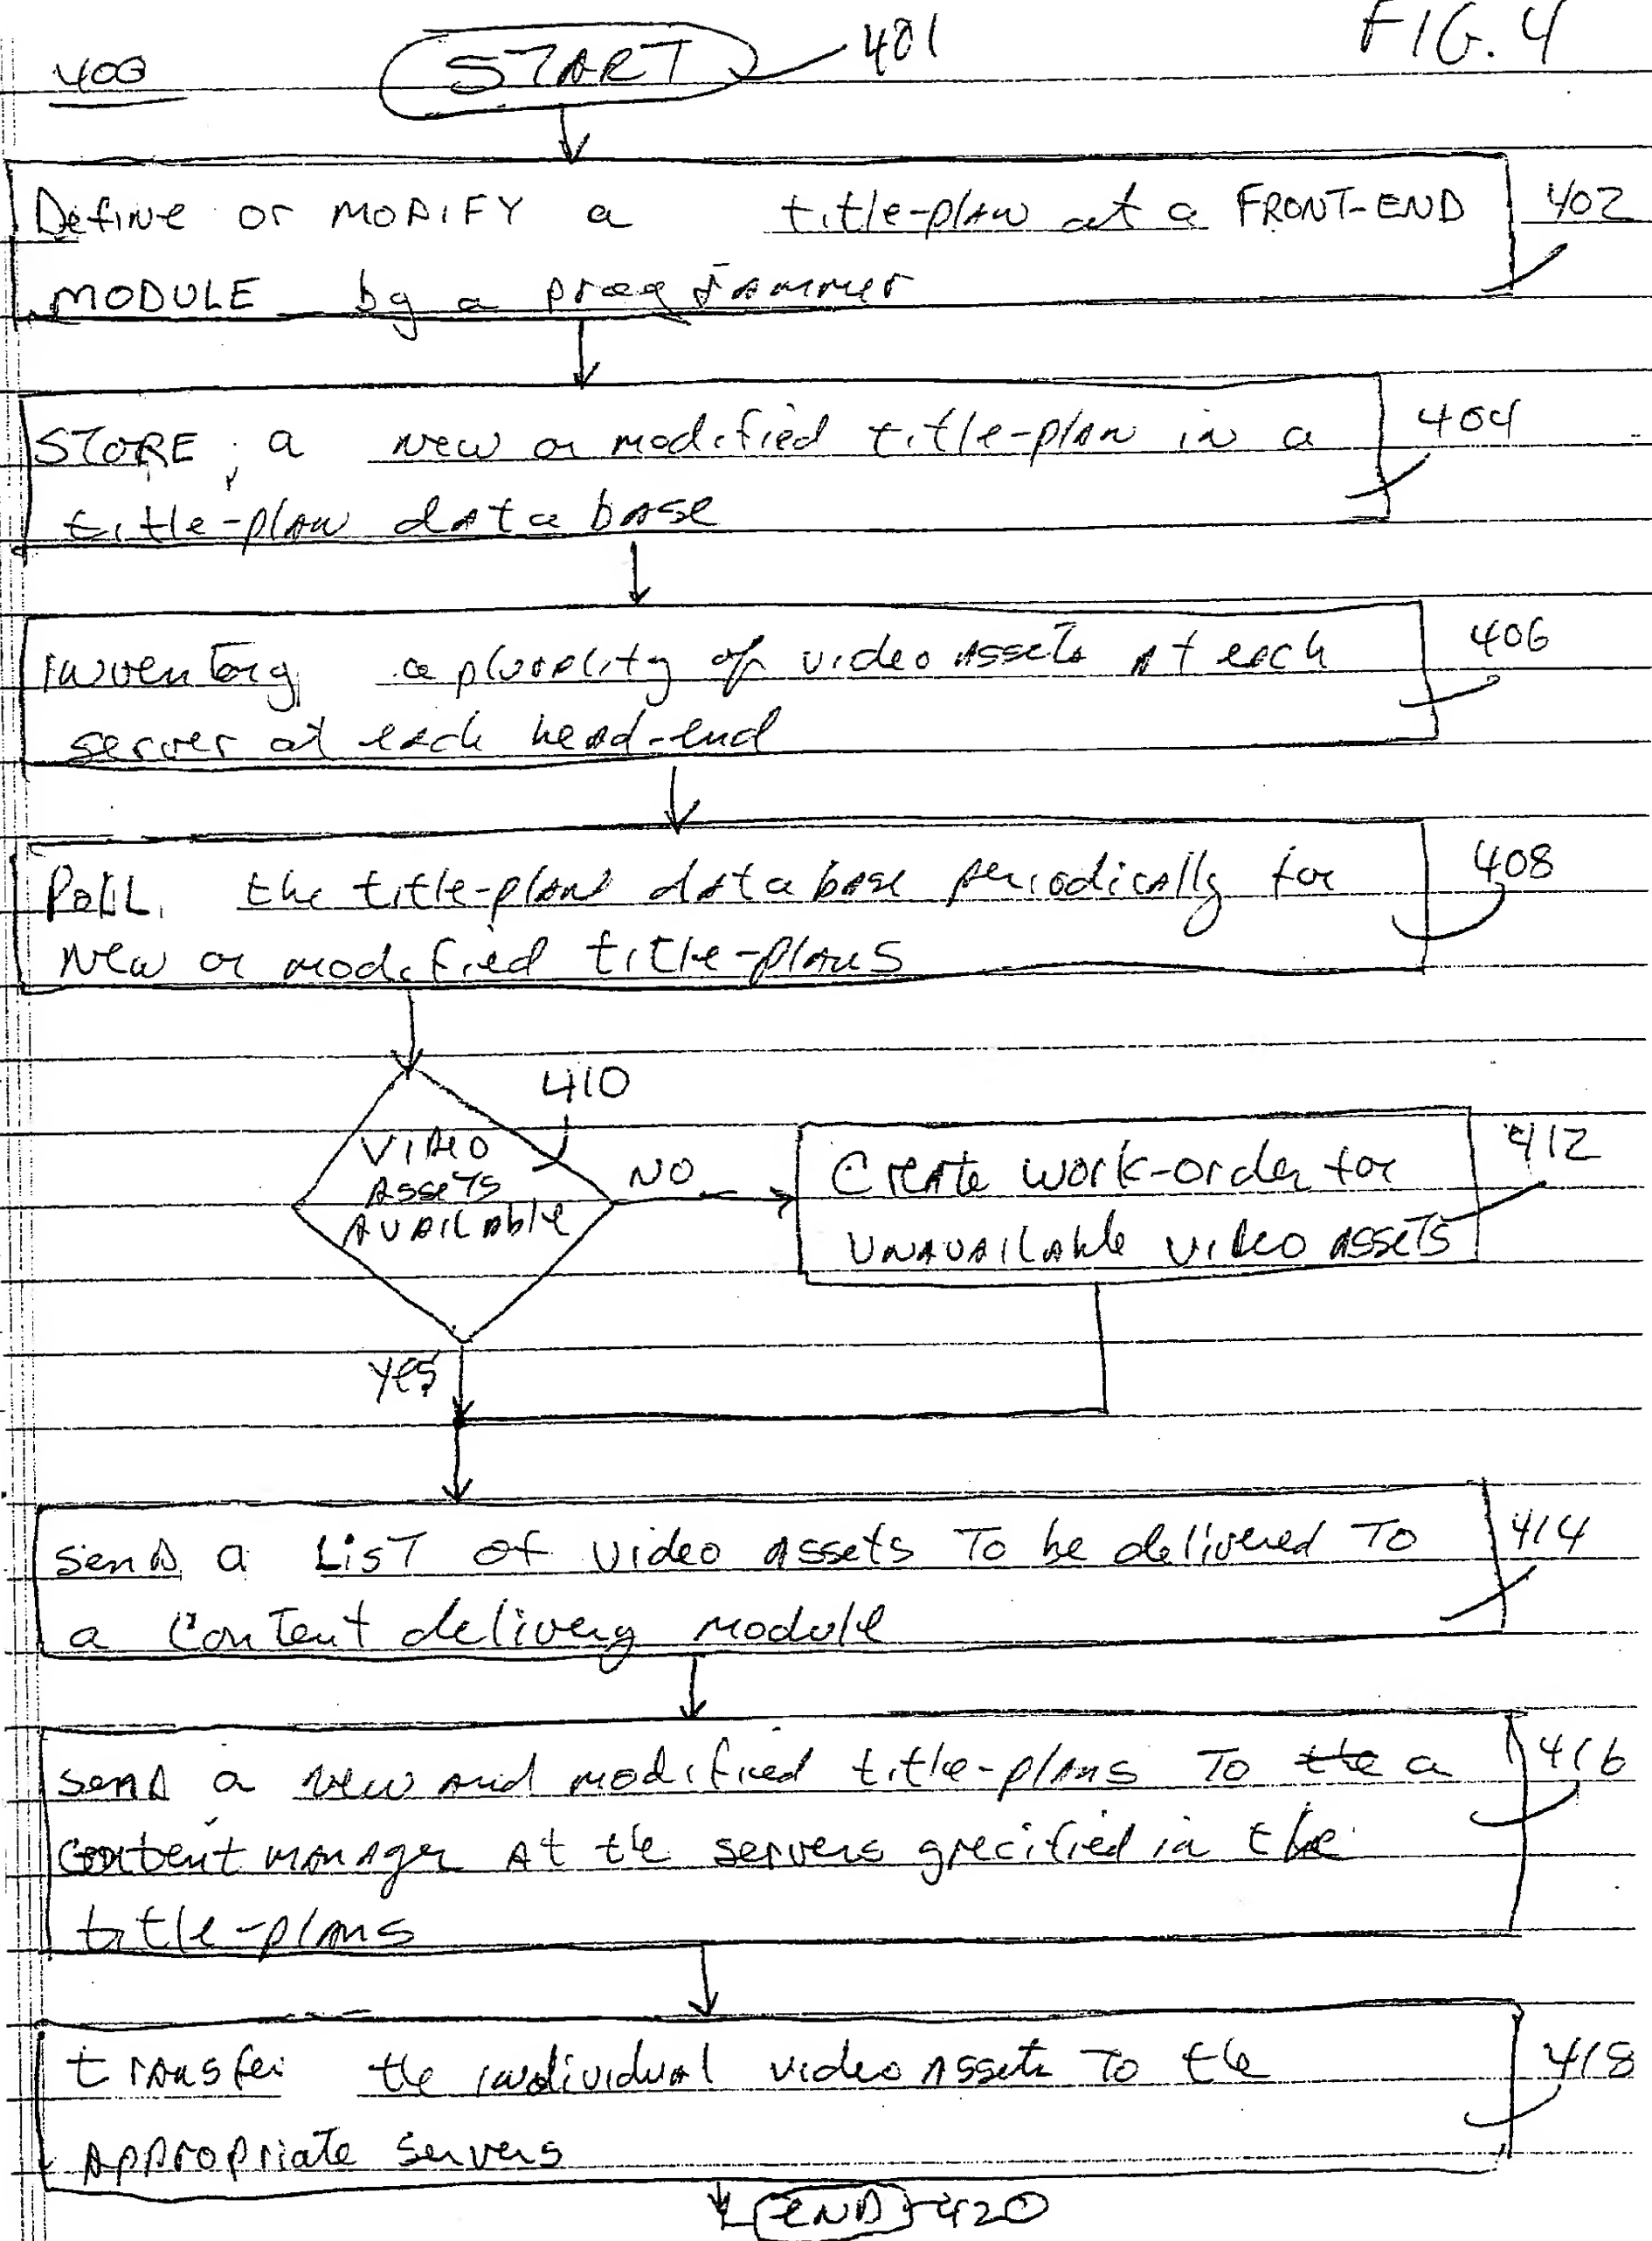 FIG. 4
400
START 401
Define or MODIFY a title-plan at a FRONT-END 402
MODULE by a programmer
STORE a new or modified title-plan in a 404
title-plan database
inventory a plurality of video assets at each 406
server at each head-end
Poll the title-plan database periodically for 408
new or modified title-plans
410
VIDEO
ASSETS
AVAILABLE
NO
Create work-order for 412
UNAVAILABLE VIDEO ASSETS
YES
Send a LIST of video assets To be delivered To 414
a Content delivery module
Send a new and modified title-plans To the a 416
Content manager at the servers specified in the
title-plans
transfer the individual video assets To the 418
Appropriate Servers
END 420